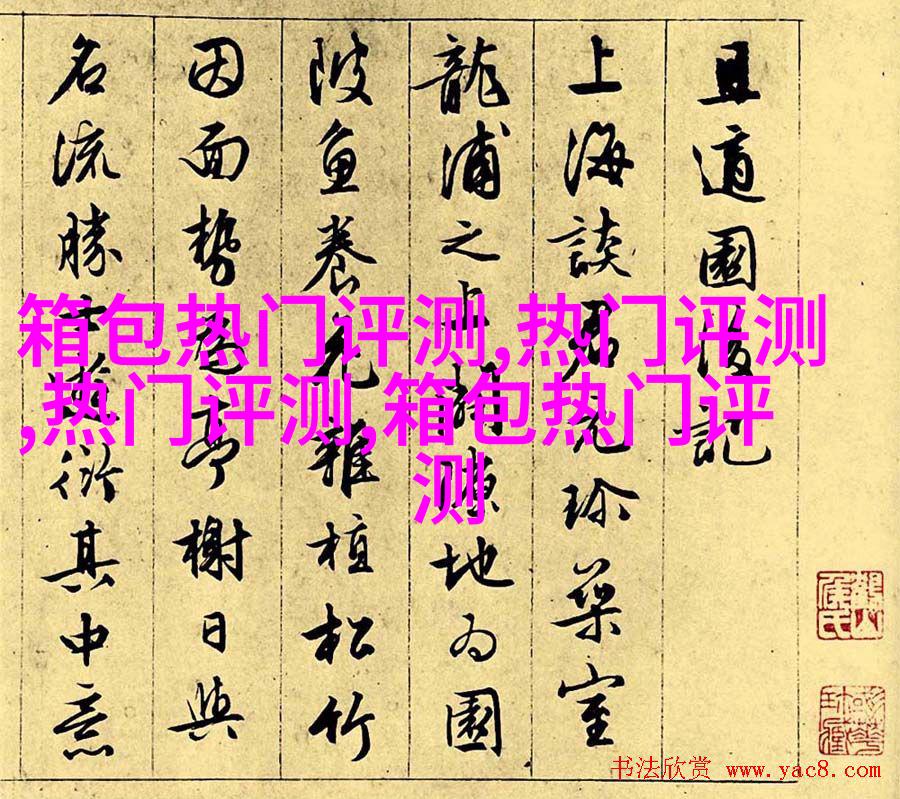 且適園後記
上海談君元珍築室
龍浦之上購隙地為園
陂魚養花雜植松竹
因面勢亭榭日與
名流勝士遊衍其中意
箱包热门评测,热门评测
,热门评测,箱包热门评
测
书法欣赏 www.yac8.com